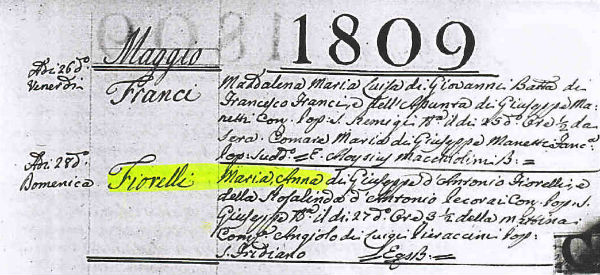 1809
Maggio
Adi 26 d.o
Venerdi
Franci
Maddalena Maria Luisa di Giovanni Batta di
Francesco Franci, e dell'Assunta di Giuseppe Ma=
netti Con. Pop. S. Remigi N.a il di 25 d.o Ore ½ da
Sera. Comare Maria di Giuseppe Manetti
Pop. Sudd.o = E. Aloysius B. =
Adi 28 d.o
Domenica
Fiorelli
Maria Anna di Giuseppe d'Antonio Fiorelli, e
della Rosalinda d'Antonio Pecorai Con. Pop. S.
Giuseppe N.a il di 27 d.o Ore 3½ della mattina
Comp.e Angiolo di Luigi Pieraccini Pop.
S. Fridiano